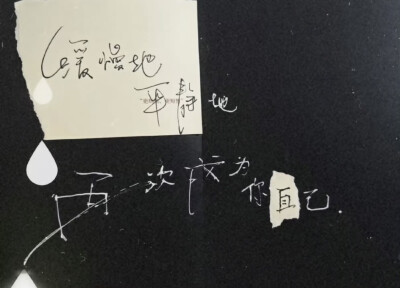 缓慢地
平静地
再一次成为
你自己.